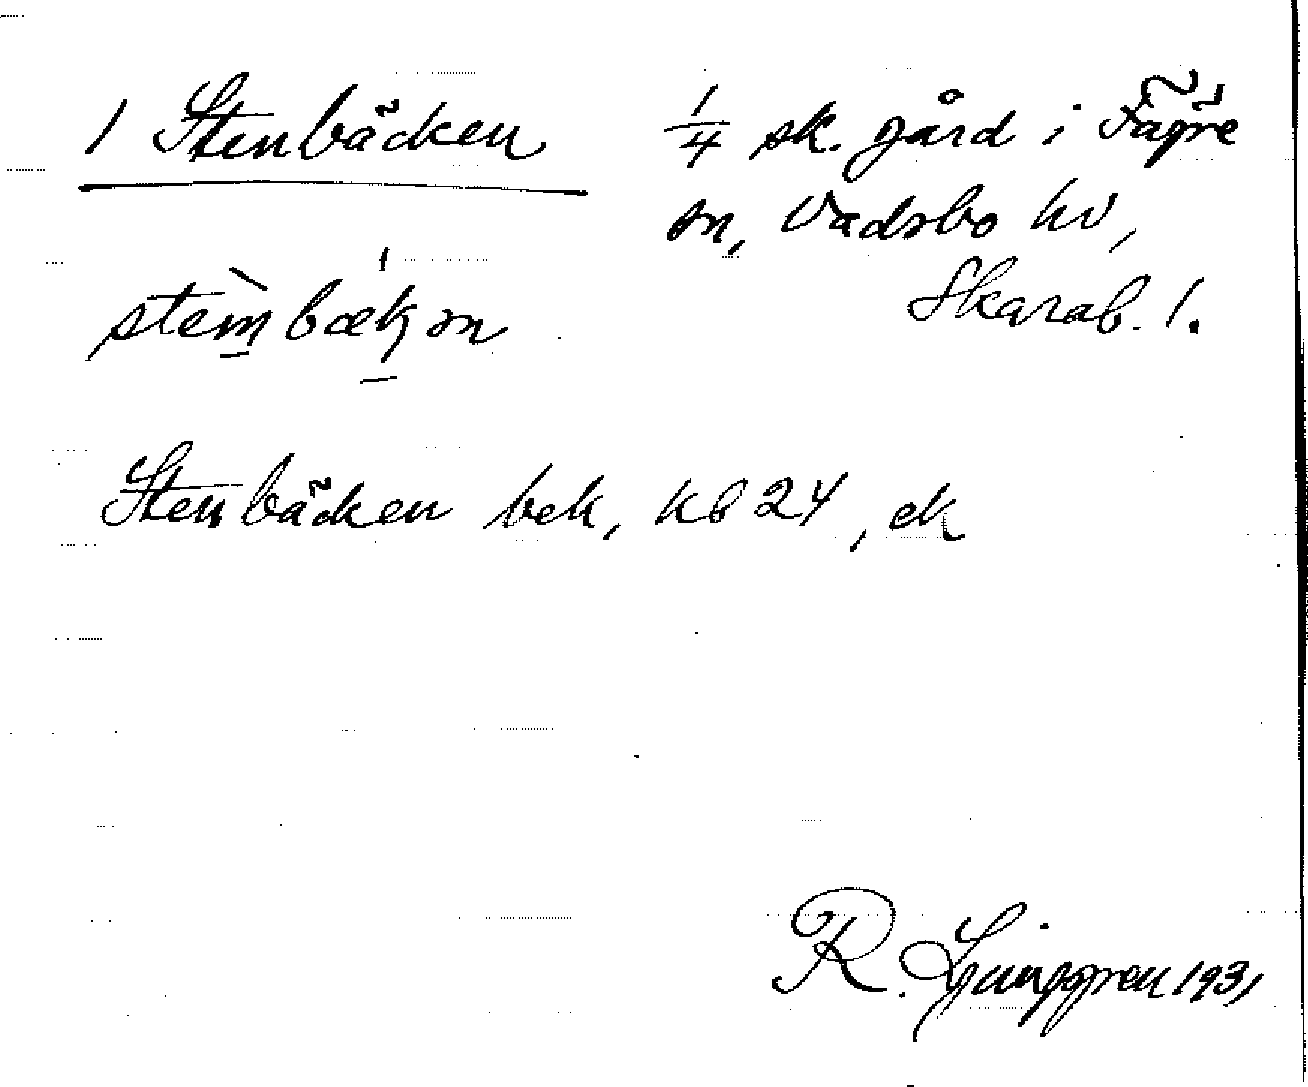 1 Stenbäcken 1/4 sk. gård i Fägre
sn, Vadsbo hd,
Skarab. l.
stembækən
Stenbäcken bek, kb 24, ek
R. Ljunggren 1931